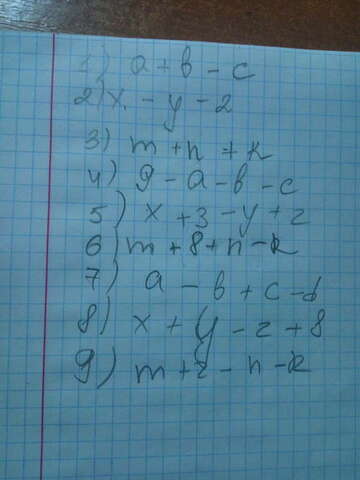 1) a + b - c
2) x - y - 2
3) m + n + k
4) 9 - a - b - c
5) x + 3 - y + z
6) m + 8 + n - k
7) a - b + c - d
8) x + y - z + 8
9) m + 2 - n - k